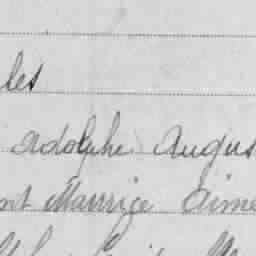 les
Adolphe Augus
nt Maurice Aime